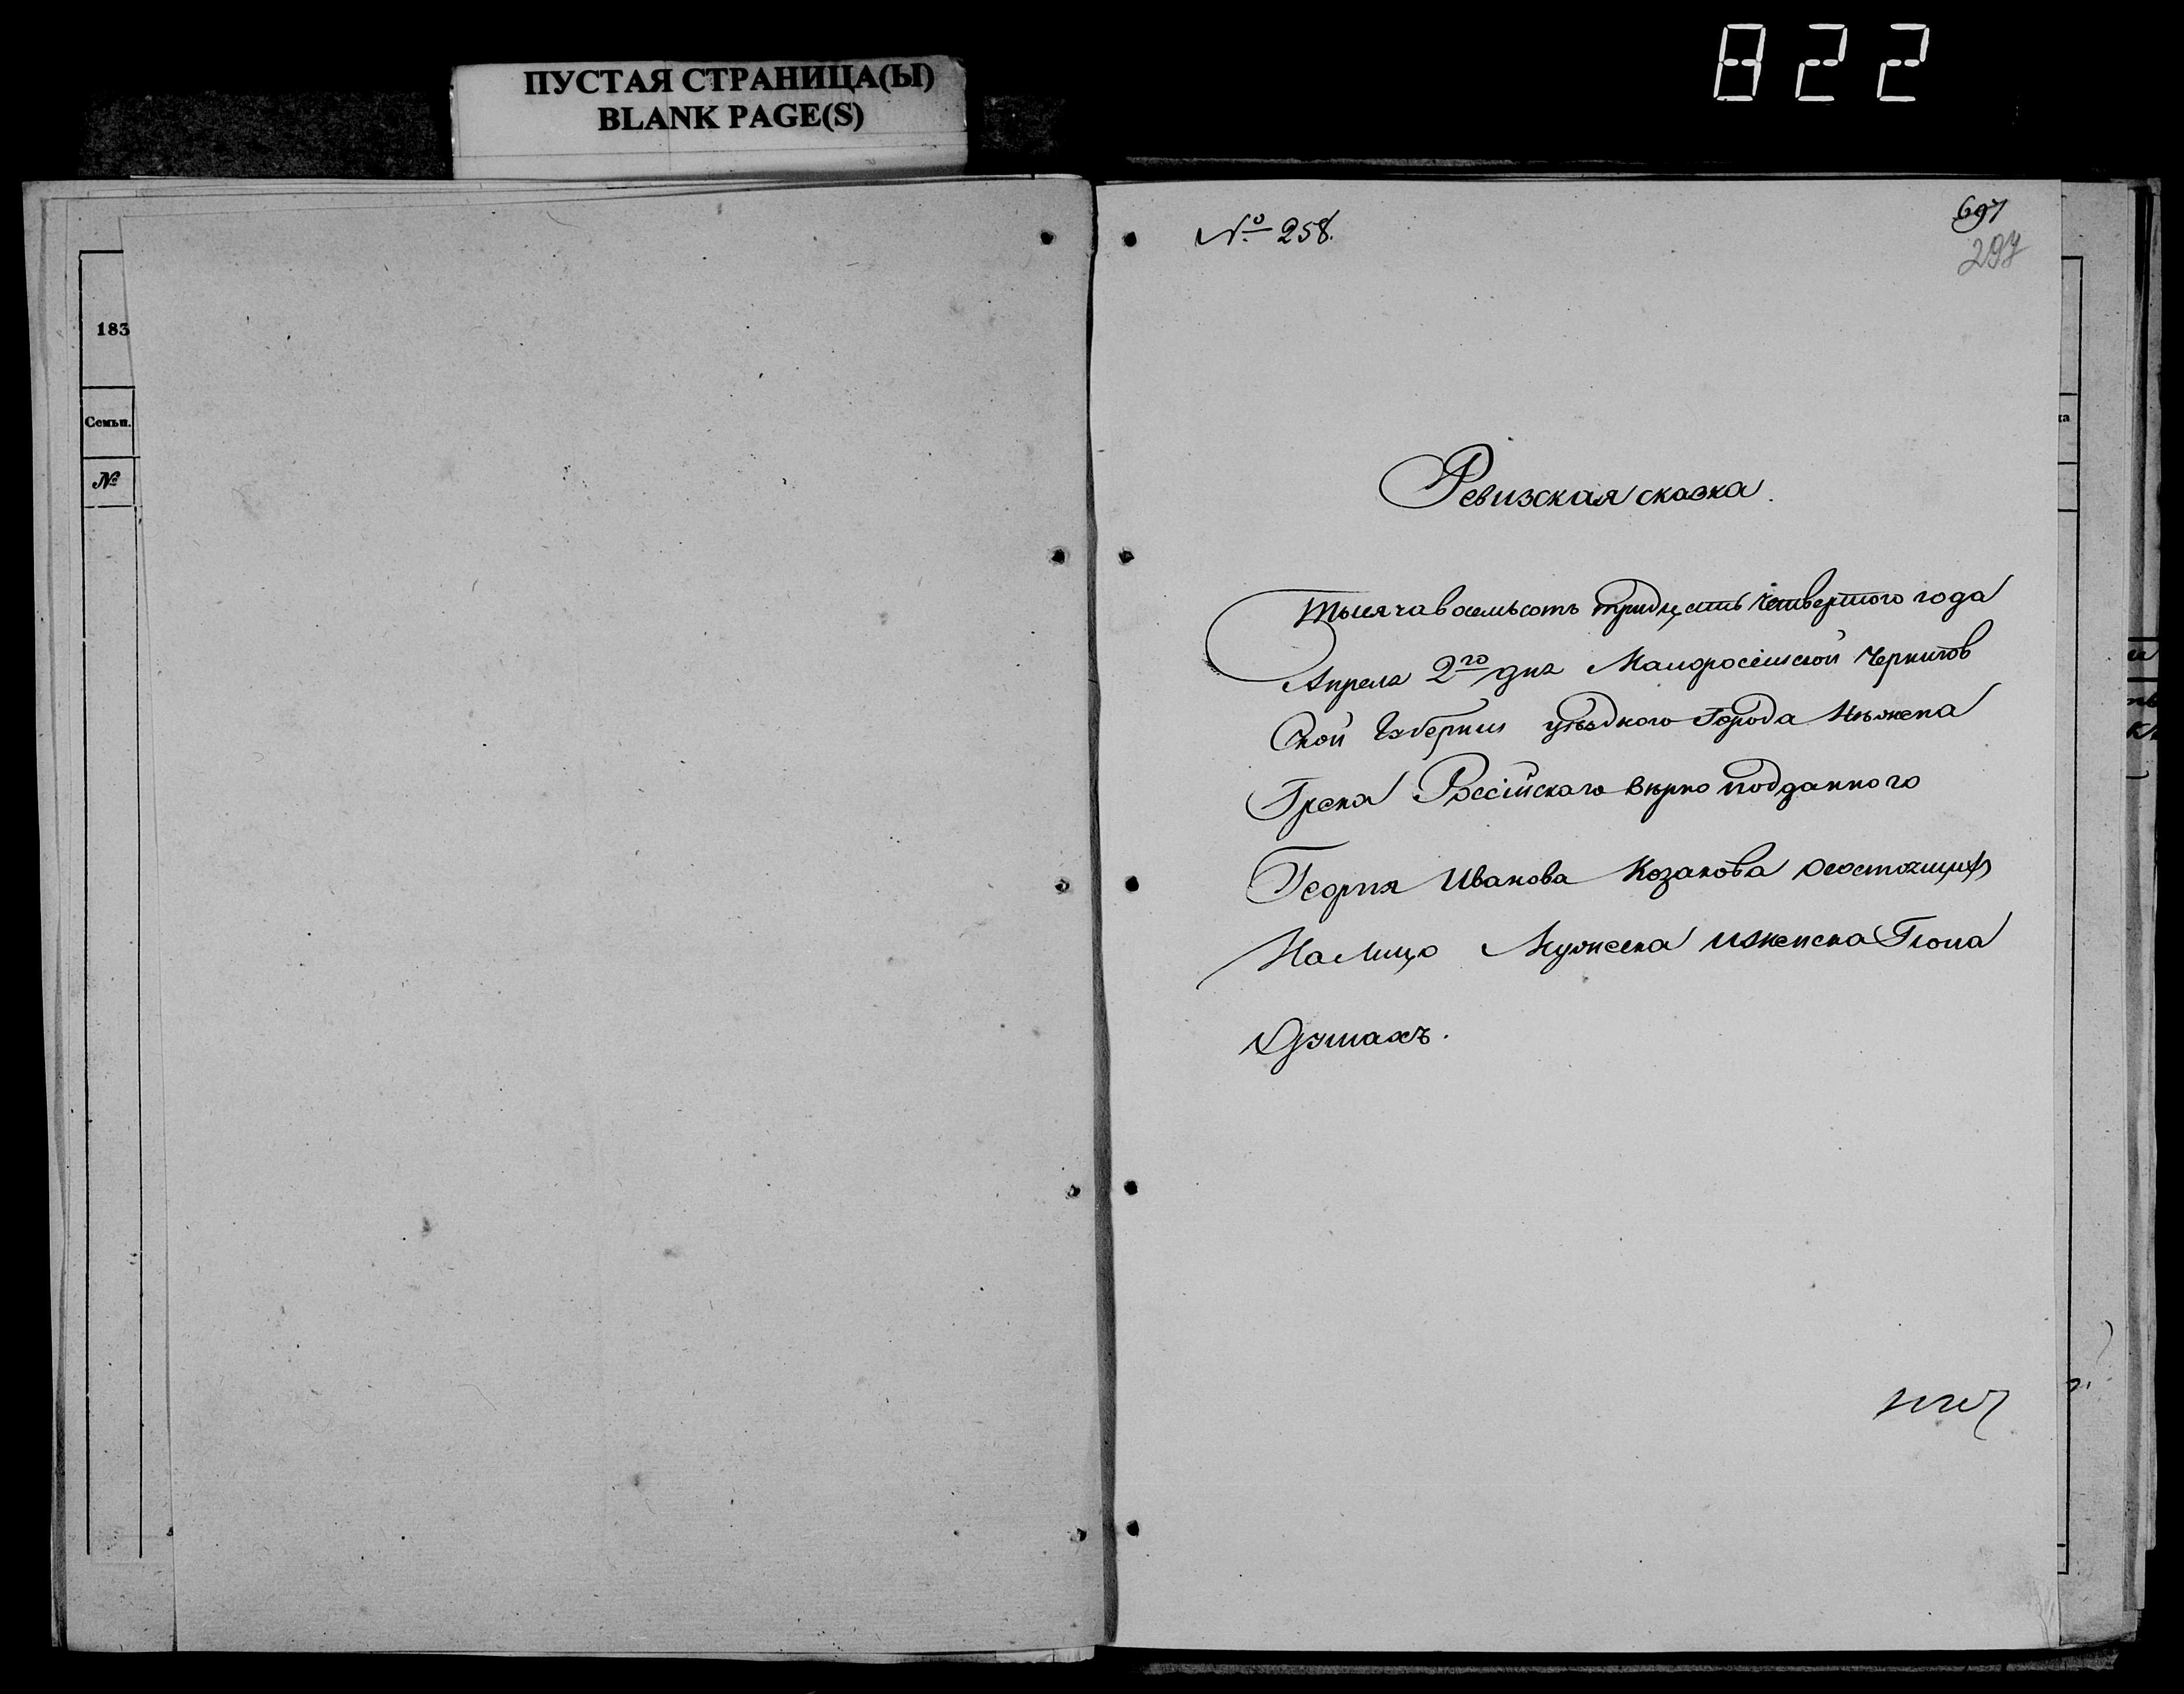 822
ПУСТАЯ СТРАНИЦА(Ы)
BLANK PAGE(S)
183
Семьи.
№
№ 258.
697
297
Ревизская сказка.
Тысяча восемьсотъ тридцать четвертого года
Апреля 2го дня Малоросiйской Чернигов
ской Губернии уѣздного Города Нѣжена
Грека Россiйскаго вѣрно подданного
Георгия Иванова Козакова осостоящих
На Лицо Мужеска иженска Пола
Душахъ.